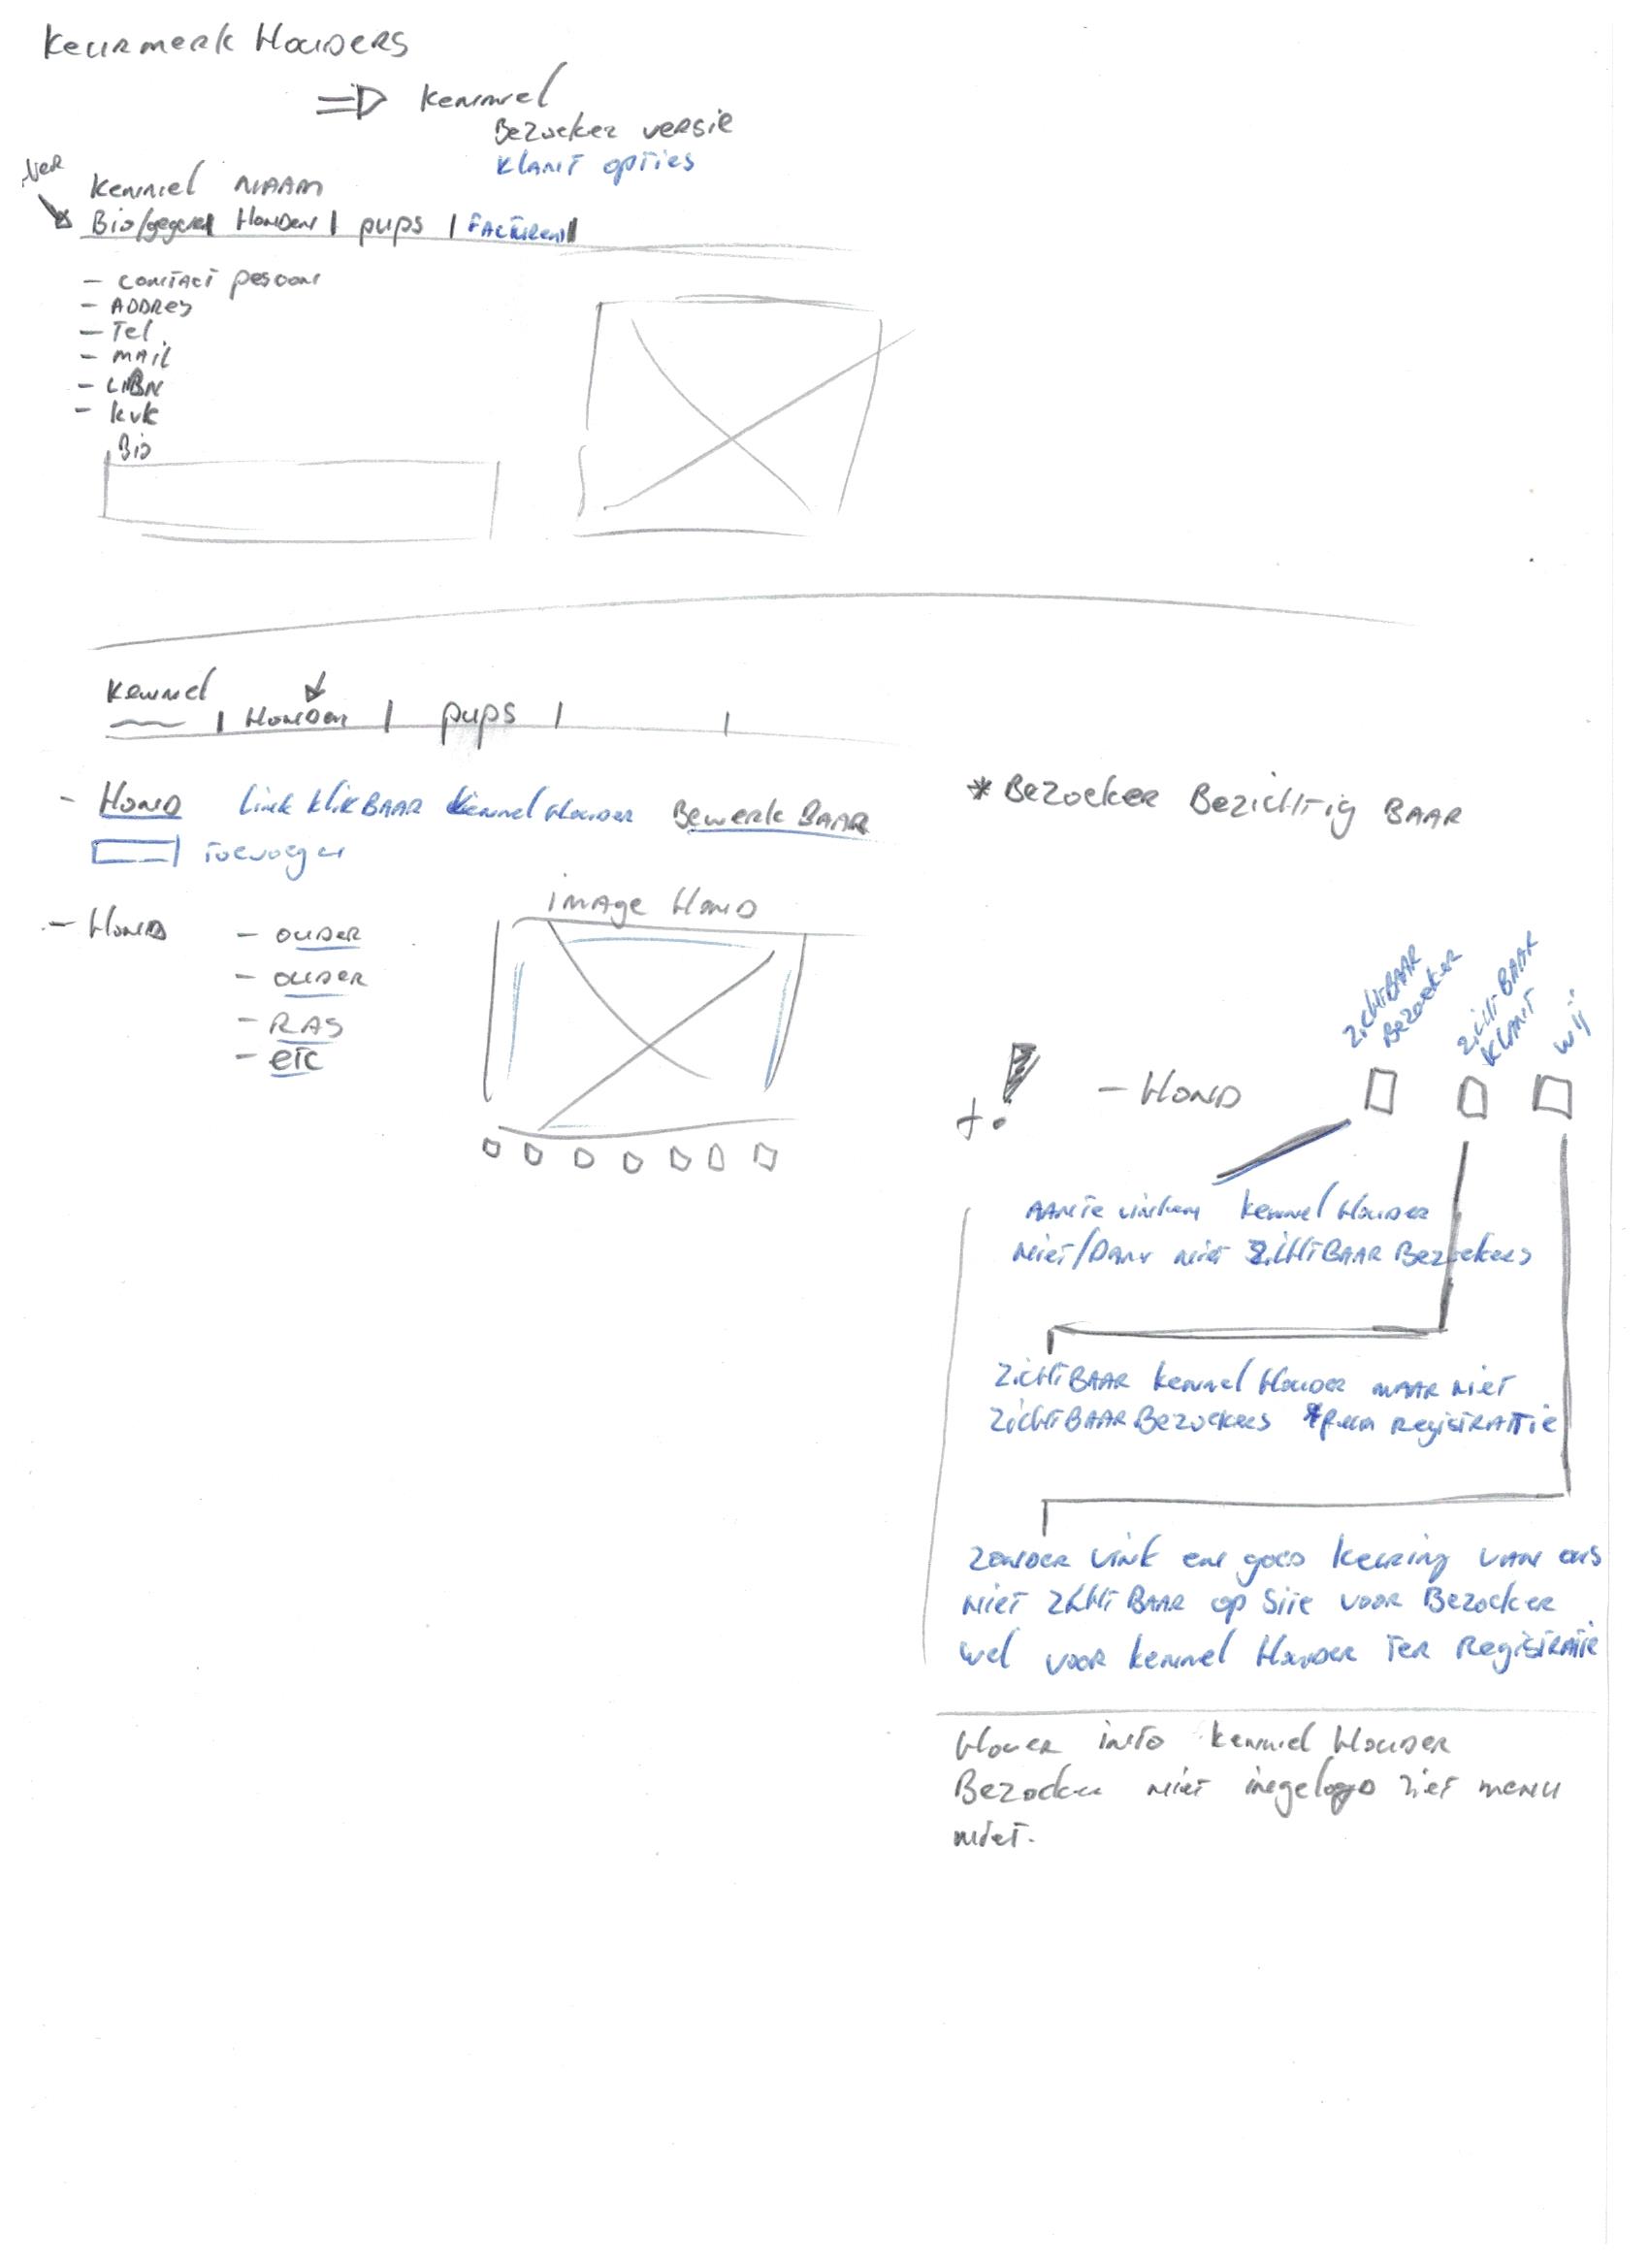 Keurmerk Houders
=> Kennel
Bezoeker versie
Klant opties
Kennel NAAM
Bio/gegeven | Honden | pups | Facturen |
- contact pesoon
- Addres
- Tel.
- mail
- UBN
- kvk
Bio
Kennel
Honden | pups |
- Hond link klikbaar Kennel Houder Bewerkbaar
toevoegen
* Bezoeker Bezichtigbaar
- Hond
- ouder
- ouder
- RAS
- etc
image Hond
zichtbaar Bezoeker
zichtbaar klant
wij
+! - Hond
aan te vinken kennel Houder
niet/Dan niet zichtbaar Bezoekers
zichtbaar kennel Houder maar niet
zichtbaar Bezoekers * registrattie
zonder vink en goed keuring van ons
niet zichtbaar op site voor Bezoeker
wel voor kennel Houder ter registratie
Hover info kennel Houder
Bezoeker niet ingelogd ziet menu
niet.